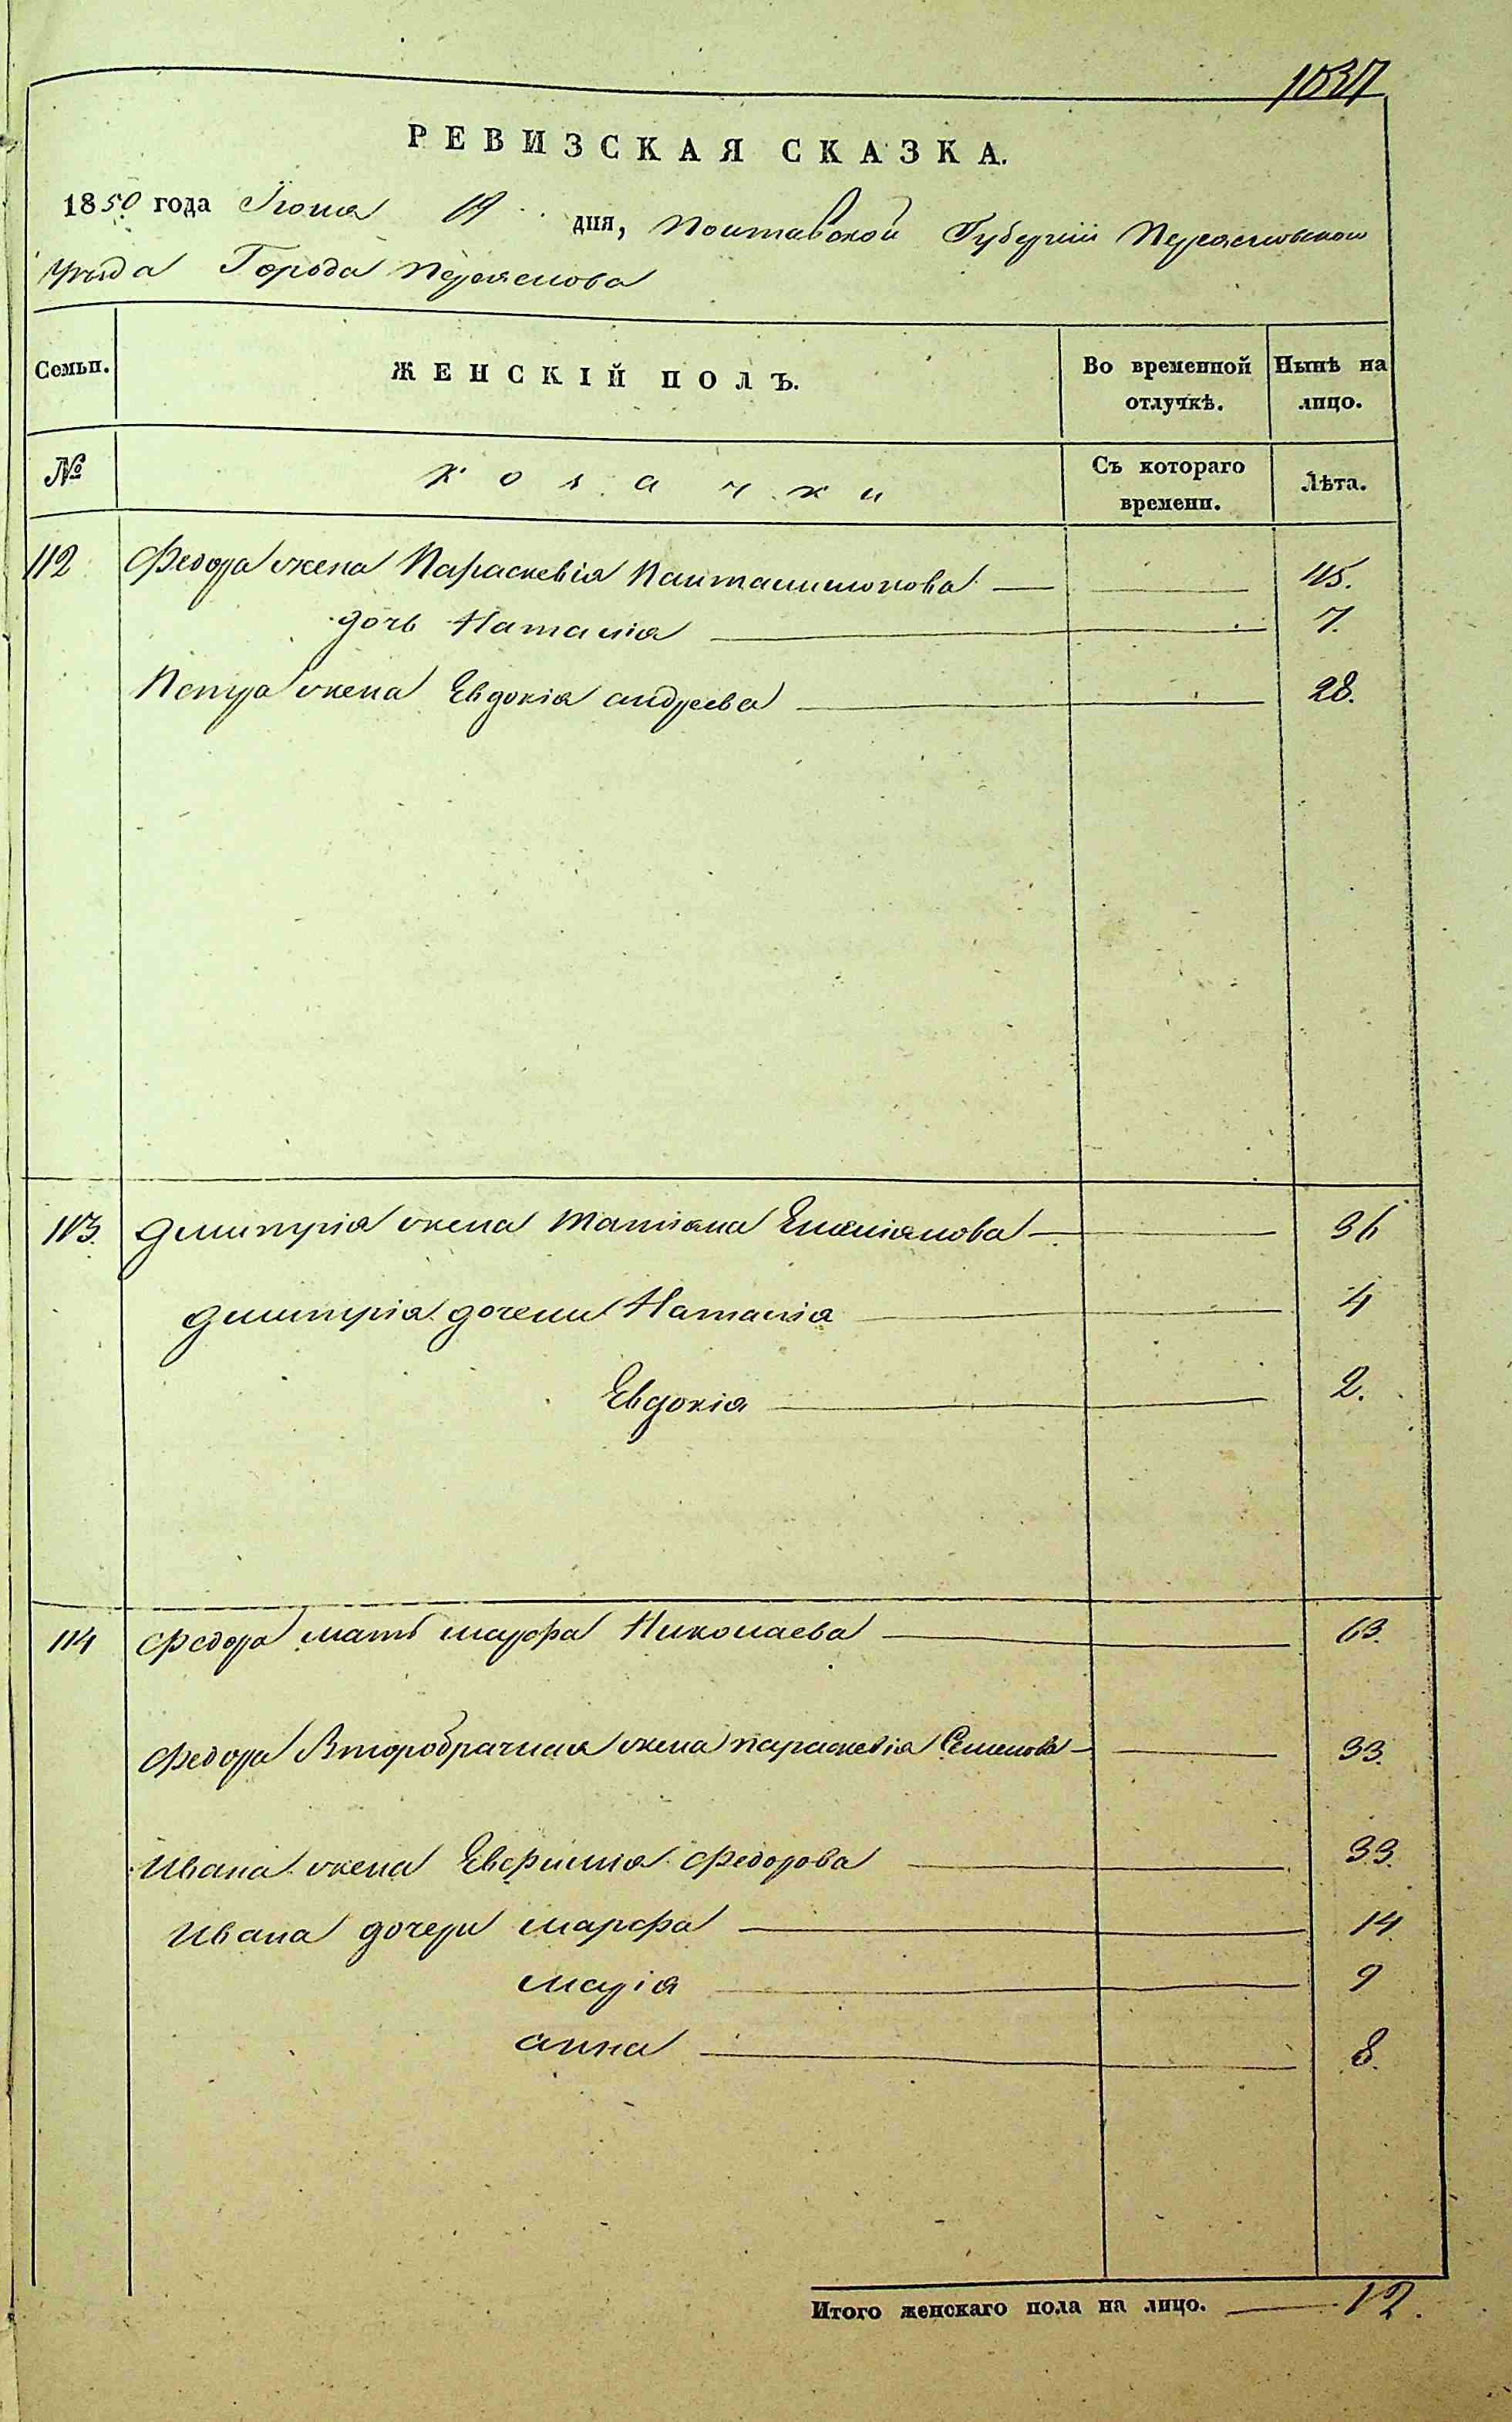 1037
РЕВИЗСКАЯ СКАЗКА.
1850 года Іюня 19 дня, Полтавской Губерніи Переяславскаго
уезда Города Переяслова
Семьи.
ЖЕНСКІЙ ПОЛЪ.
Во временной отлучкѣ.
Нынѣ на лицо.
№
Козачки
Съ котораго времени.
Лѣта.
112 Федора жена Параскевія Панталимонова 45.
дочь Наталія 7.
Петра жена Евдокія андреева 28.
113. Димитрія жена Татіана Емеліанова 36
Димитрія дочери Наталія 4
Евдокія 2.
114 Федора мать марфа Николаева 63.
Федора Второбрачная жена параскевія Семенова 33.
Ивана жена Евфимія Федорова 33.
Ивана дочери марфа 14.
марія 9
анна 8.
Итого женскаго пола на лицо. 12.